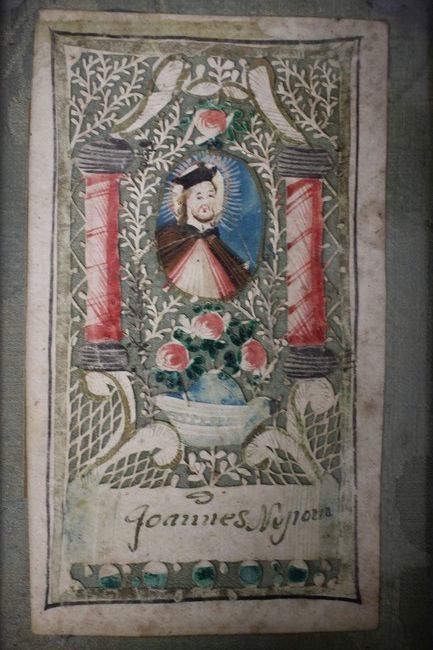 S
Joannes Nepom